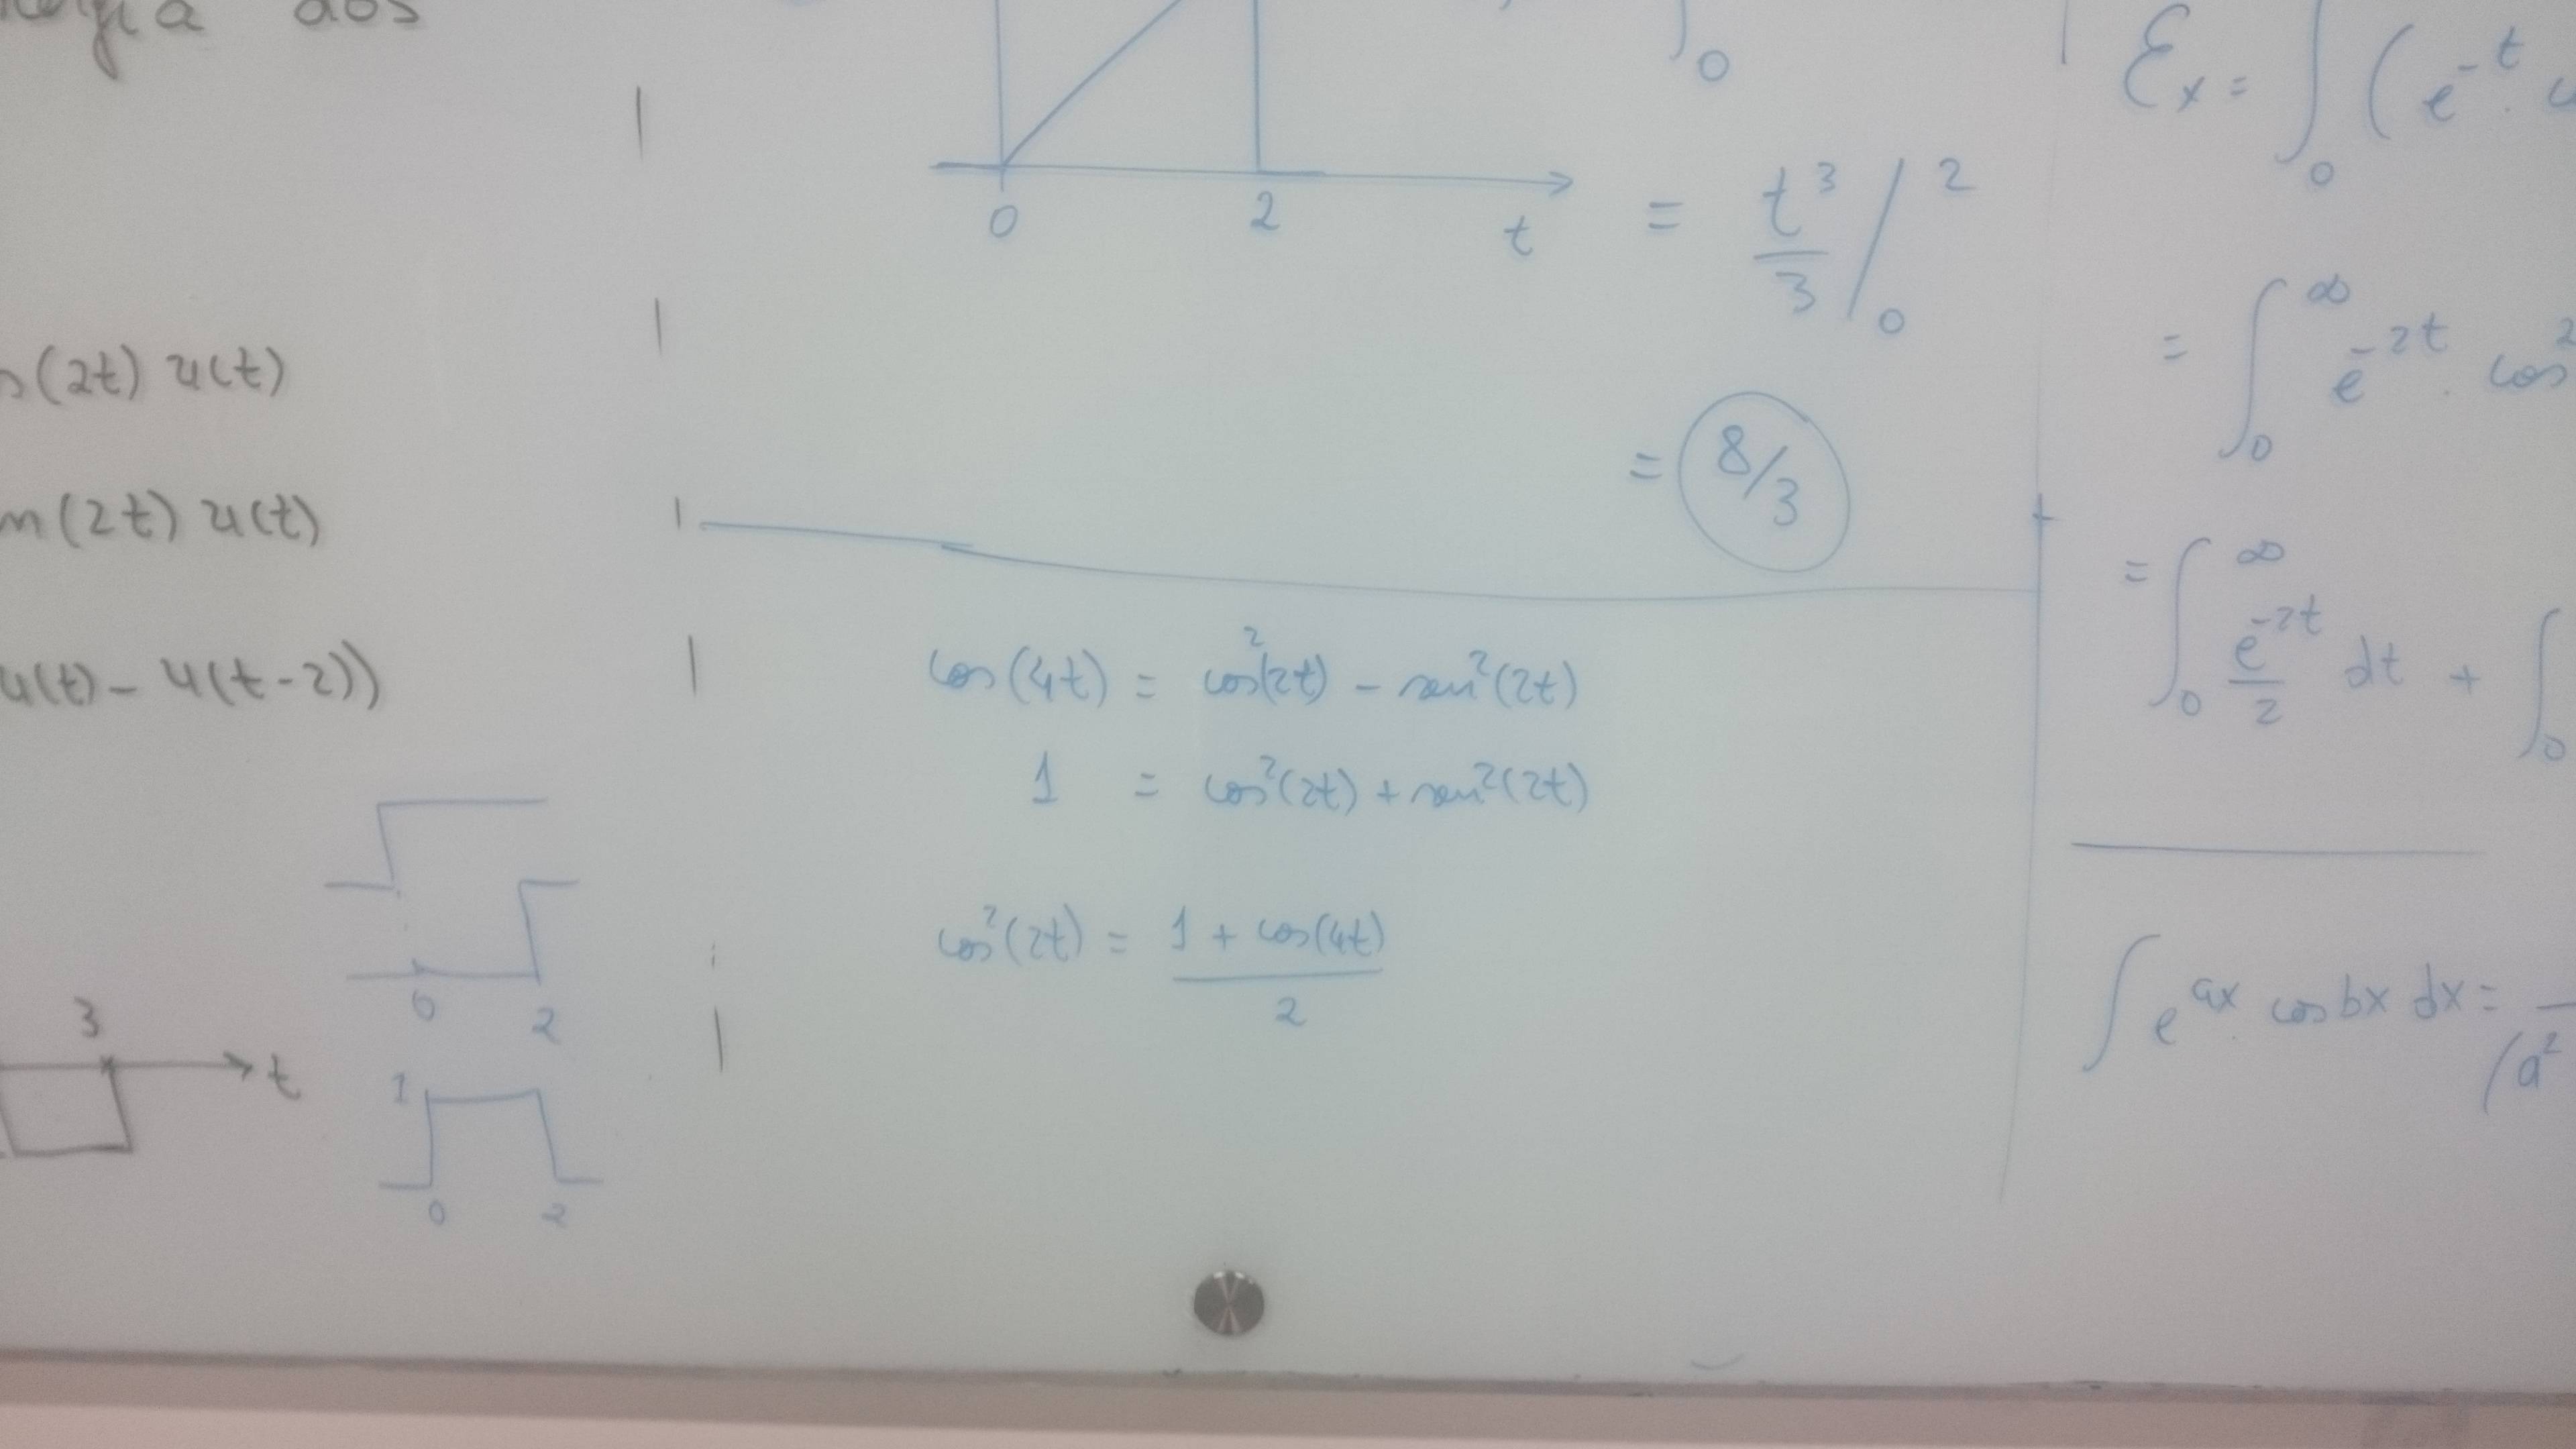 aos
(2t) u(t)
m(2t) u(t)
u(t) - u(t-2))
3
t
0 2
1
0 2
0 2 t
0
= t³/3 /₀²
= 8/3
cos(4t) = cos²(2t) - sen²(2t)
1 = cos²(2t) + sen²(2t)
cos²(2t) = (1 + cos(4t))/2
Ex = ∫₀ (e^-t
= ∫₀^∞ e^-2t . cos²
= ∫₀^∞ e^-2t/2 dt + ∫₀
∫ e^ax . cos bx dx =
(a²